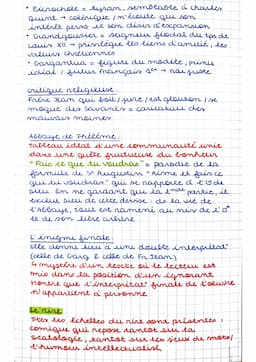 • Picrochole = tyran, semblable à Charles
Quint → colérique / n'écoute que son
intérêt perso et son désir d'expansion
• Grandgousier = seigneur féodal du tps de
Louis XII → privilégie les liens d'amitié, les
valeurs chrétiennes
• Gargantua = figure du modèle, prince
idéal / futur François 1er →
Critique religieuse :
Frère Jean qui boit / jure / est glouton / se
moque des savants = caricature des
mauvais moines
Abbaye de Thélème :
Tableau idéal d'une communauté unie
dans une quête fructueuse du bonheur
"Fais ce que tu voudras" = parodie de la
formule de St Augustin "Aime et fais ce
que tu voudras" qui se rapporte à
Dieu. En ne gardant que la 2nde partie, il
exclut Dieu de cette devise : ds la vie de
l'Abbaye, tout est ramené au niv de l'
et de son libre arbitre
L'énigme finale :
Elle donne lieu à une double interprétat°
(celle de Garg & celle de Fr Jean)
↳ mystère d'un texte où le lecteur est
mis dans la position d'un ignorant
notent que l'interprétat° finale de l'œuvre
n'appartient à personne
Le rire
Ttes les échelles du rire sont présentes :
comique qui repose autant sur la
scatologie, autant sur les jeux de mots /
l'humour intellectualisé